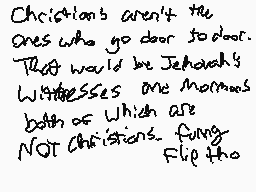 Christians aren't the
ones who go door to door.
That would be Jehovah's
Witnesses and Mormons
both of which are
NOT Christians. Funny
Flip tho